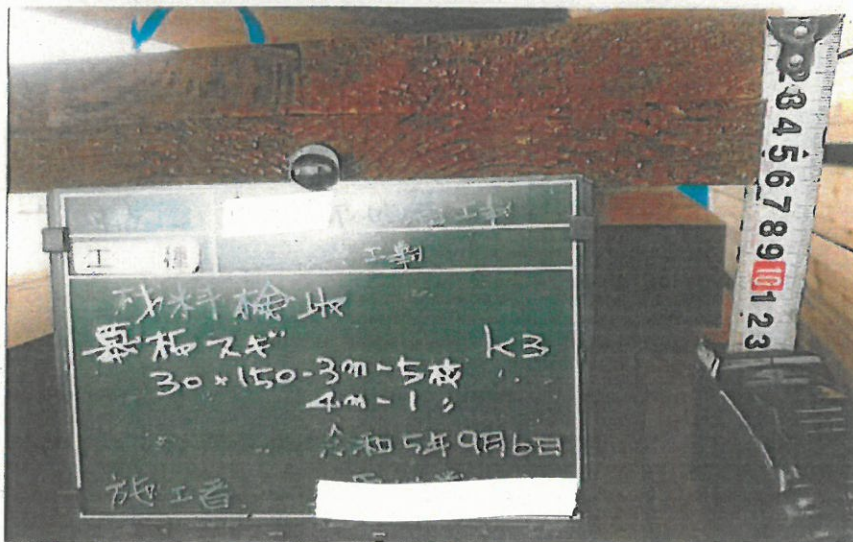 工種
工事
材料検収
幕板スギ K3
30×150-3m-5枚
4m-1〃
令和5年9月6日
施工者
2 3 4 5 6 7 8 9 10 1 2 3